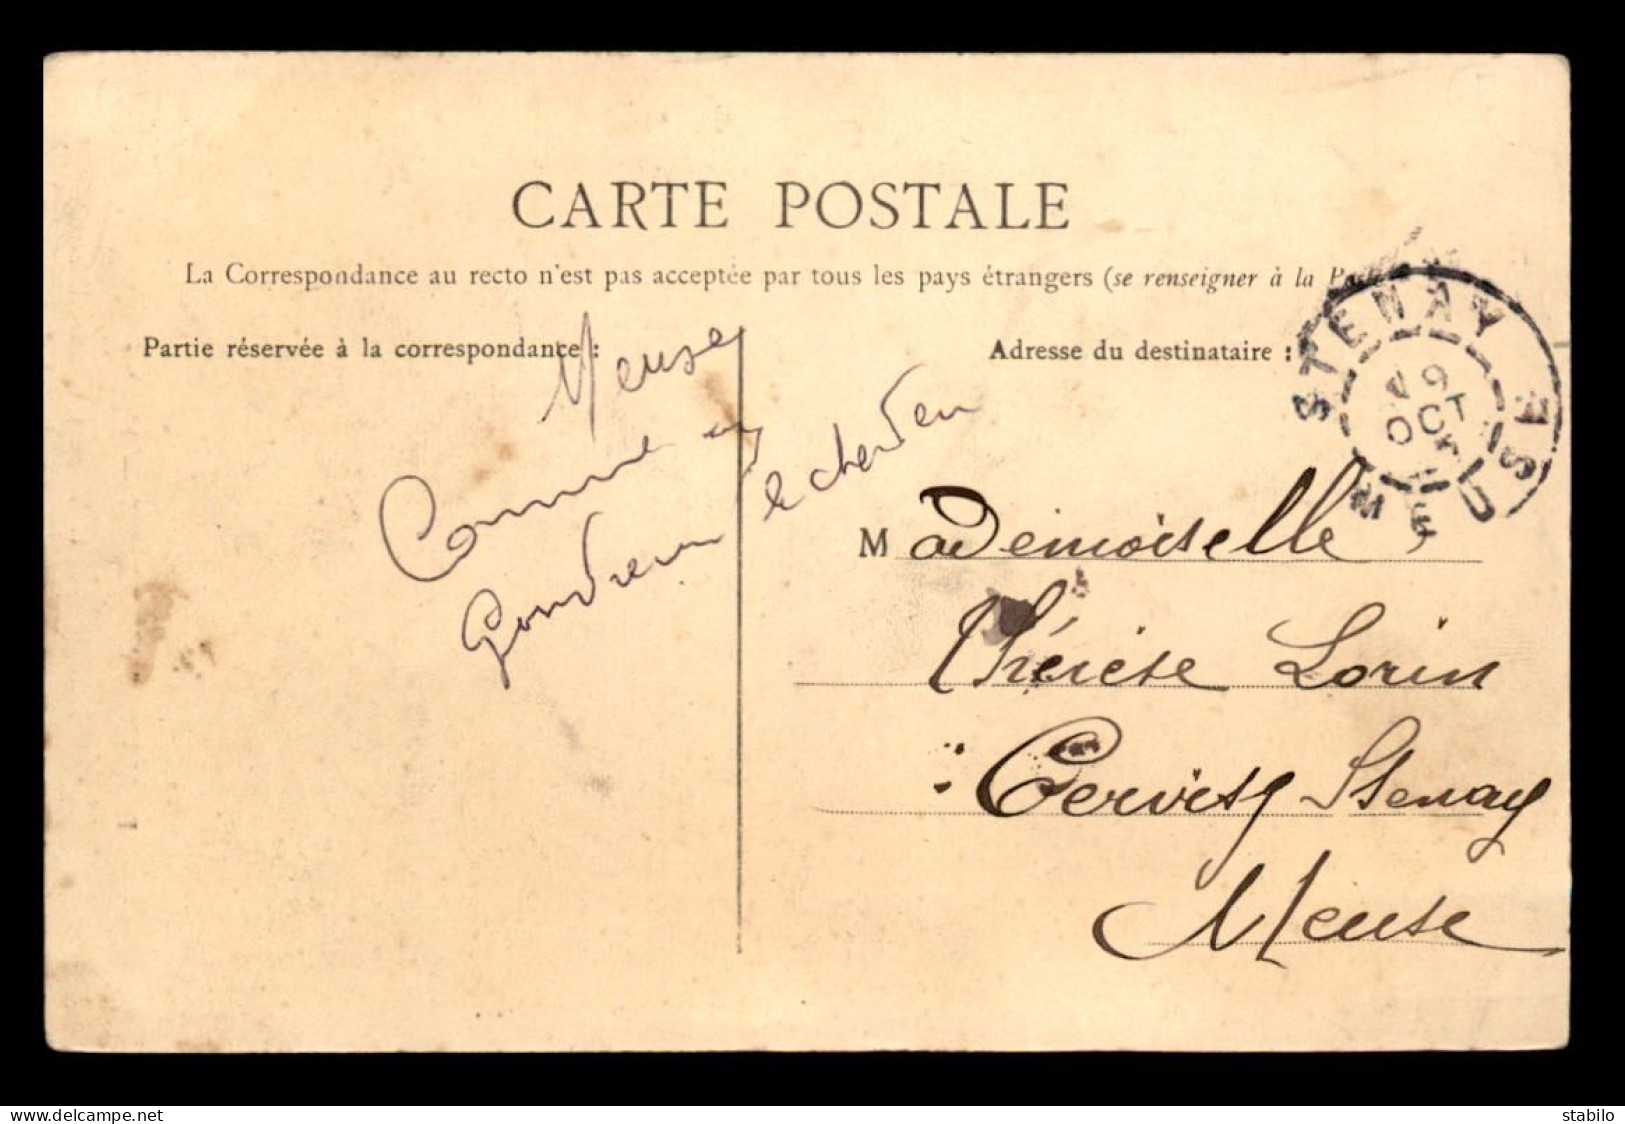 CARTE POSTALE
La Correspondance au recto n'est pas acceptée par tous les pays étrangers (se renseigner à la Poste
Partie réservée à la correspondance :
Adresse du destinataire :
STENAY
9
OCT
MEUSE
Meuse
Comme
Gondrecourt le chateau
Mademoiselle
Thérèse Lorin
Cervisy Stenay
Meuse
www.delcampe.net
stabilo